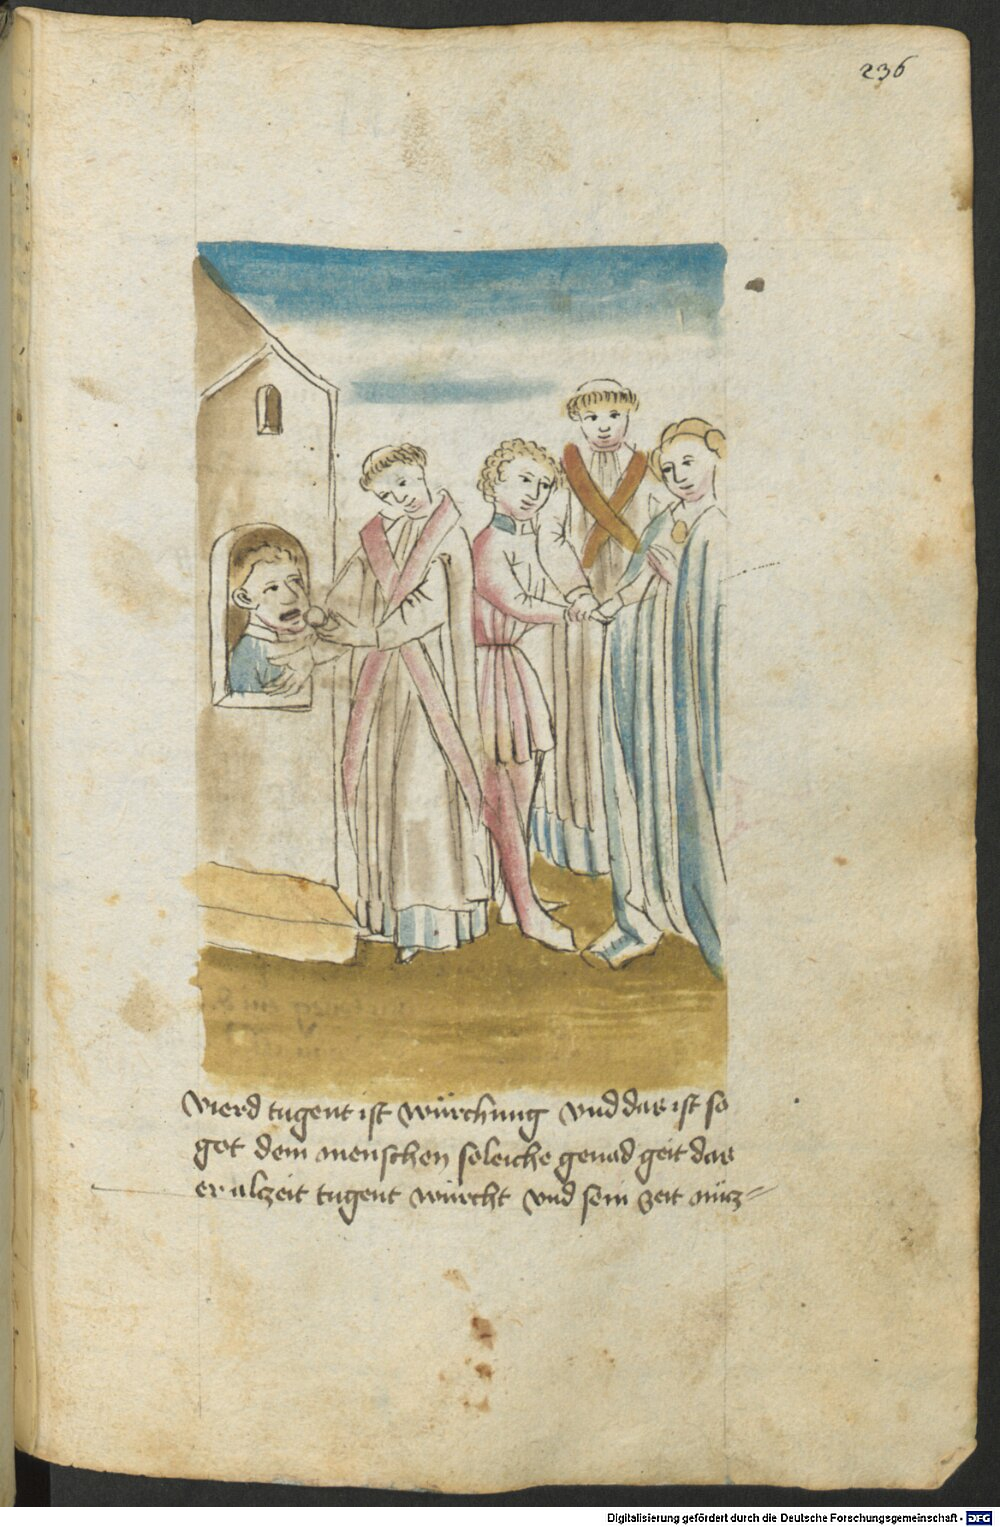 236
vierd tugent ist würchung vnd das ist so
got dem menschen soleiche genad geit das
er alczeit tugent würcht vnd sein zeit nücz=
Digitalisierung gefördert durch die Deutsche Forschungsgemeinschaft - DFG